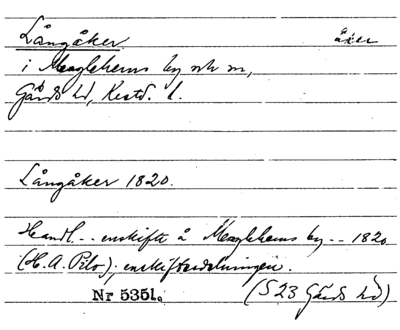 Långåker åker
i Maglehems by och sn,
Gärds hd, Krstd. l.
Långåker 1820.
Handl. -- enskifte å Maglehems by -- 1820
(H. A. Pilo); enskiftesdelningen.
Nr 5351. (S 23 Gärds hd)